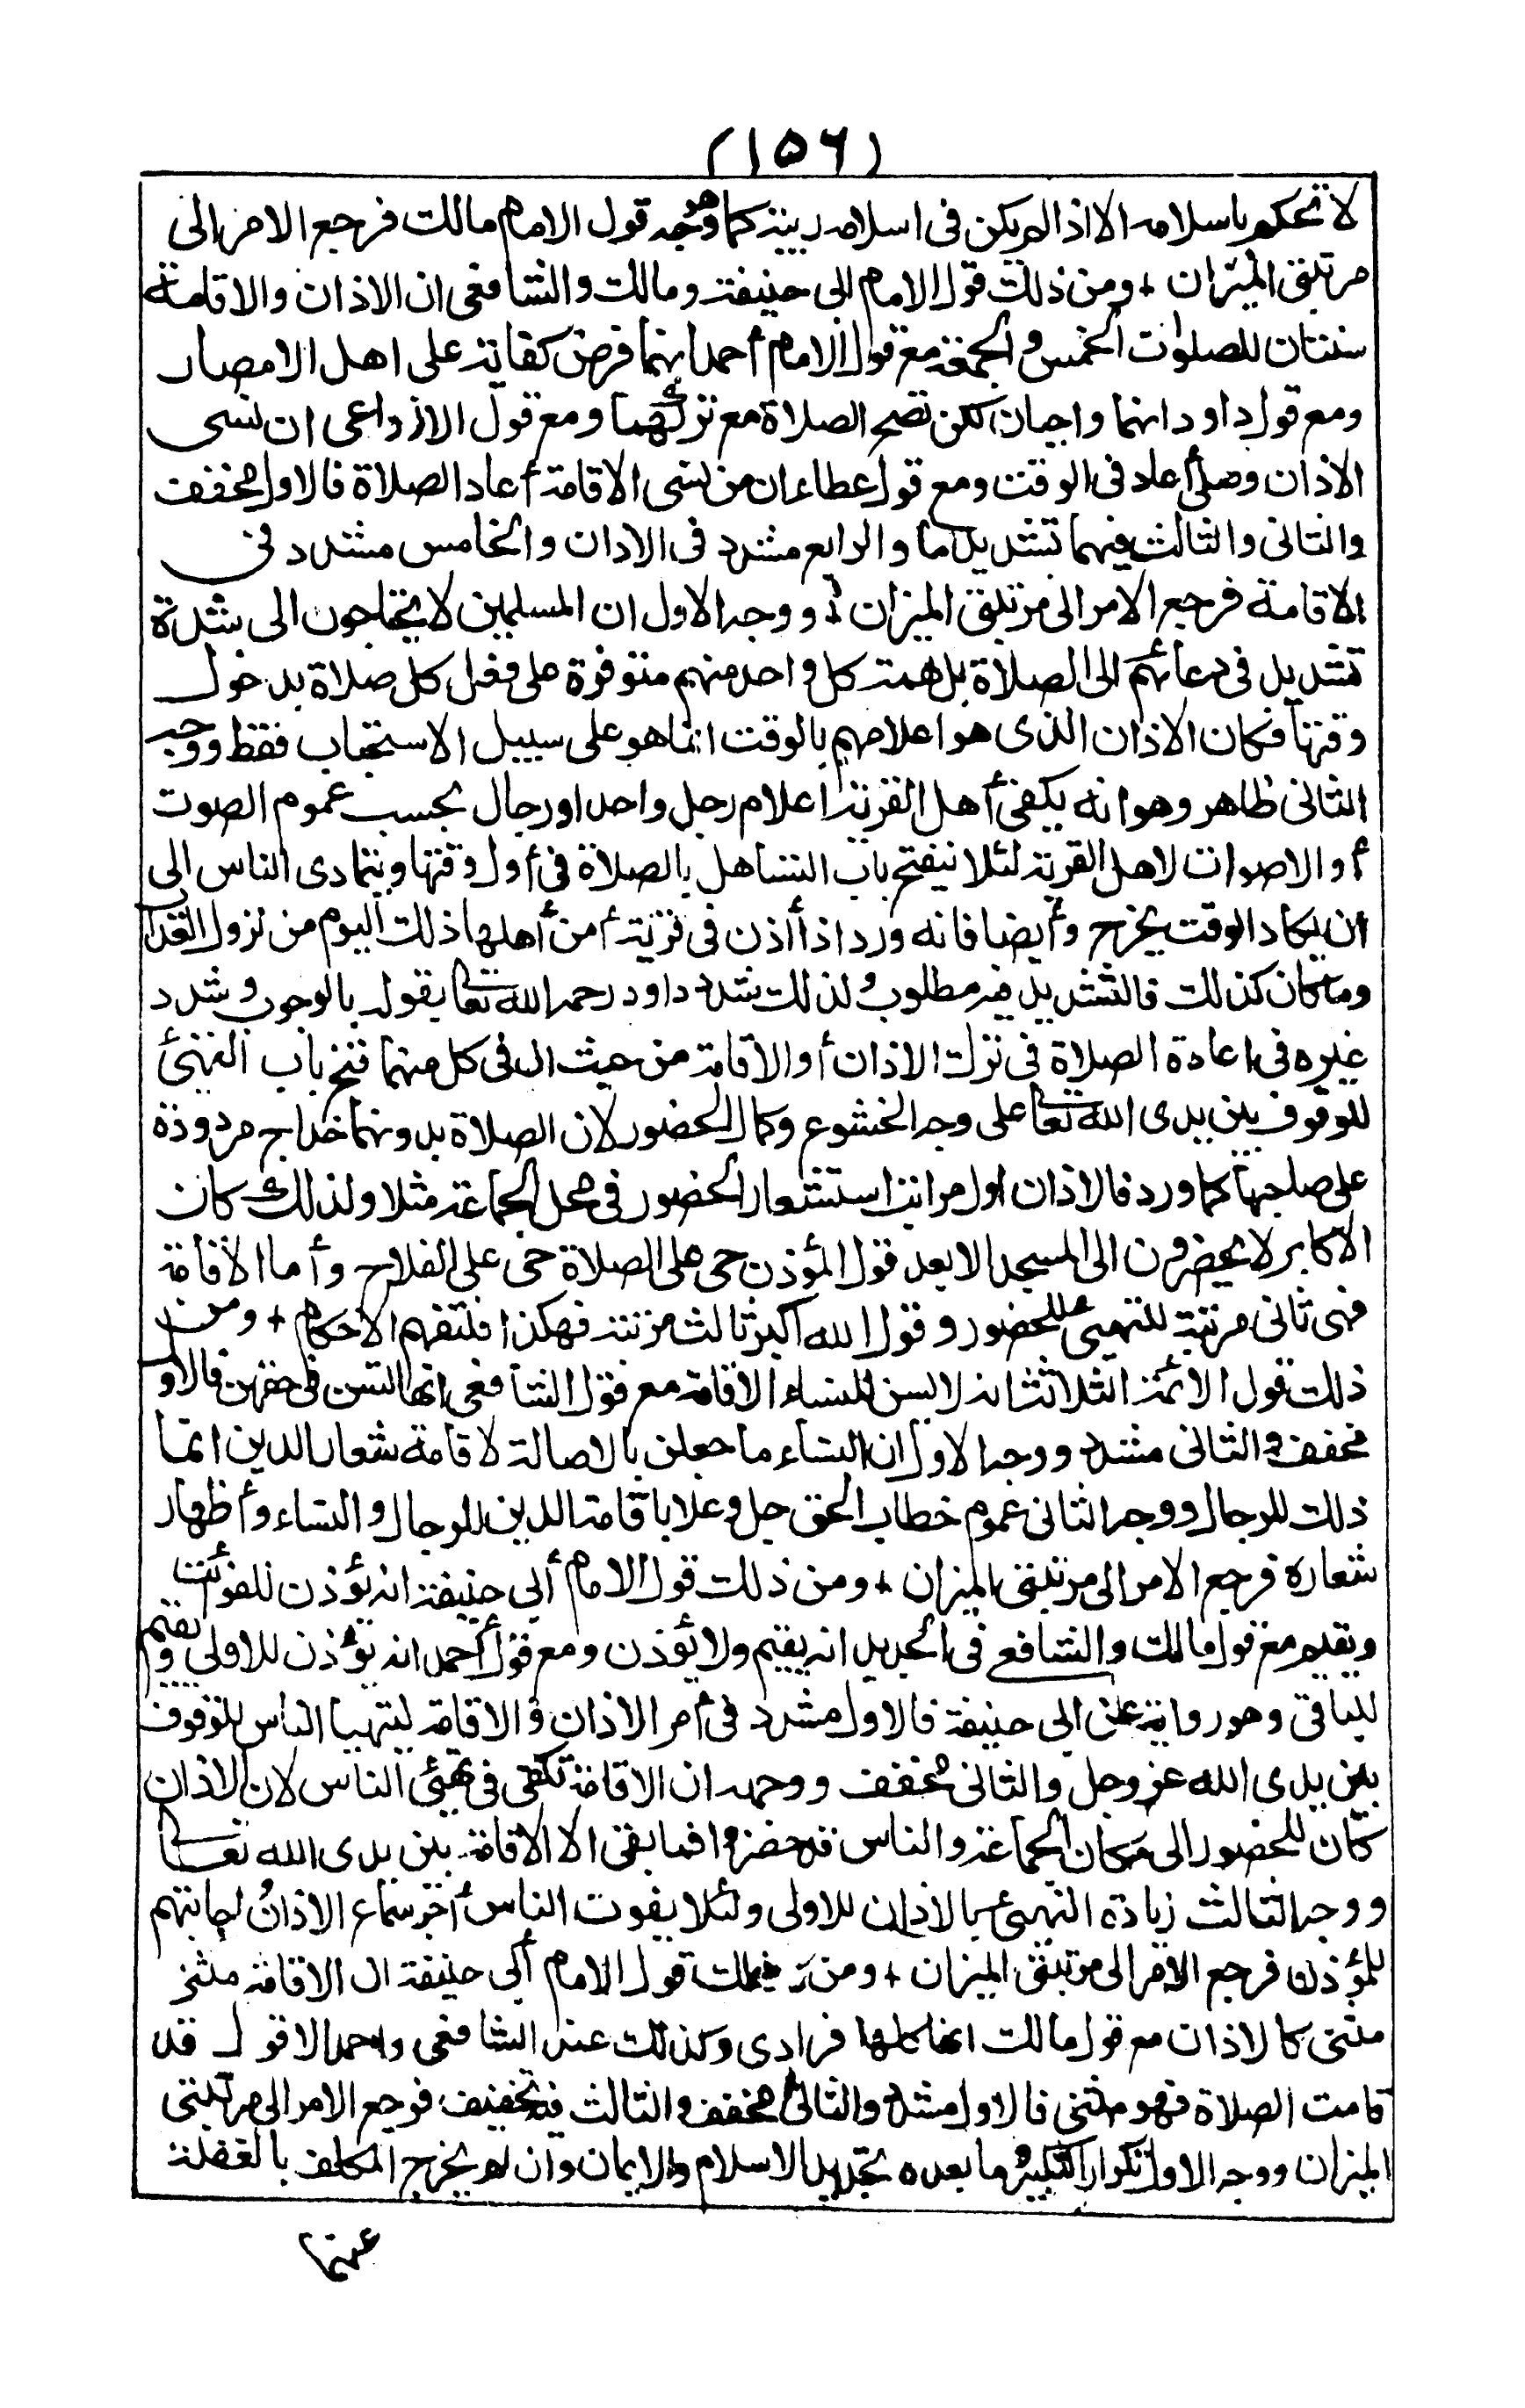 (١٥٦)
لا تحكم باسلامه الا اذا لم يكن فى اسلامه ريبة كما هو وجه قول الامام مالك فرجع الامر الى
مرتبتى الميزان + ومن ذلك قول الامام ابى حنيفة ومالك والشافعى ان الاذان والاقامة
سنتان للصلوات الخمس والجمعة مع قول الامام أحمد انهما فرض كفاية على اهل الامصار
ومع قول داود انهما واجبان لكن تصح الصلاة مع تركهما ومع قول الاوزاعى ان نسى
الاذان وصلى أعاد فى الوقت ومع قول عطاء ان من نسى الاقامة أعاد الصلاة فالاول مخفف
والثانى والثالث فيهما تشديد ما والرابع مشدد فى الاذان والخامس مشدد فى
الاقامة فرجع الامر الى مرتبتى الميزان + ووجه الاول ان المسلمين لا يحتاجون الى شدة
تشديد فى دعائهم الى الصلاة بل همة كل واحد منهم متوفرة على فعل كل صلاة بدخول
وقتها فكان الاذان الذى هو اعلامهم بالوقت انما هو على سبيل الاستحباب فقط ووجه
الثانى ظاهر وهو انه يكفى أهل القرية اعلام رجل واحد او رجال بحسب عموم الصوت
أو الاصوات لاهل القرية لئلا ينفتح باب التساهل بالصلاة فى أول وقتها ويتمادى الناس الى
ان يكاد الوقت يخرج وأيضا فانه ورد اذا أذن فى قرية أمن أهلها ذلك اليوم من نزول العذاب
وما كان كذلك فالتشديد فيه مطلوب ولذلك شدد داود رحمه الله تعا بقوله بالوجوب وشدد
غيره فى اعادة الصلاة فى ترك الاذان أو الاقامة من حيث ان فى كل منهما فتح باب التهيئ
للوقوف بين يدى الله تعا على وجه الخشوع وكمال الحضور لان الصلاة بدونهما خداج مردودة
على صاحبها كما ورد فالاذان اول مراتب استشعار الحضور فى محل الجماعة مثلا ولذلك كان
الاكابر لا يحضرون الى المسجد الا بعد قول المؤذن حى على الصلاة حى على الفلاح وأما الاقامة
فهى ثانى مرتبة للتهيئ للحضور وقول الله أكبر ثالث مرتبة فهكذا فلتفهم الاحكام + ومن
ذلك قول الائمة الثلاثة انه لا يسن للنساء الاقامة مع قول الشافعى انها تسن فى حقهن فالاول
مخفف والثانى مشدد ووجه الاول ان النساء ما جعلن بالاصالة لاقامة شعار الدين انما
ذلك للرجال ووجه الثانى عموم خطاب الحق جل وعلا باقامة الدين للرجال والنساء وأظهار
شعاره فرجع الامر الى مرتبتى الميزان + ومن ذلك قول الامام أبى حنيفة انه يؤذن للفوائت
ويقيم مع قول مالك والشافعى فى الجديد انه يقيم ولا يؤذن ومع قول أحمد انه يؤذن للاولى ويقيم
للباقى وهو رواية عن ابى حنيفة فالاول مشدد فى أمر الاذان والاقامة ليتهيا الناس للوقوف
بين يدى الله عز وجل والثانى مخفف ووجهه ان الاقامة تكفى فى تهيئ الناس لان الاذان
كان للحضور الى مكان الجماعة والناس قد حضروا فما بقى الا الاقامة بين يدى الله تعا
ووجه الثالث زيادة التهيئ بالاذان للاولى ولئلا يفوت الناس أجر سماع الاذان واجابتهم
للمؤذن فرجع الامر الى مرتبتى الميزان + ومن ذلك قول الامام أبى حنيفة ان الاقامة مثنى
مثنى كالاذان مع قول مالك انها كلها فرادى وكذلك عند الشافعى واحمد الا قول قد
قامت الصلاة فهو مثنى فالاول مشدد والثانى مخفف والثالث فيه تخفيف فرجع الامر الى مرتبتى
الميزان ووجه الاول تكرار التكبير وما بعده تجديد الاسلام والايمان وان لم يخرج المكلف بالغفلة
عنهما